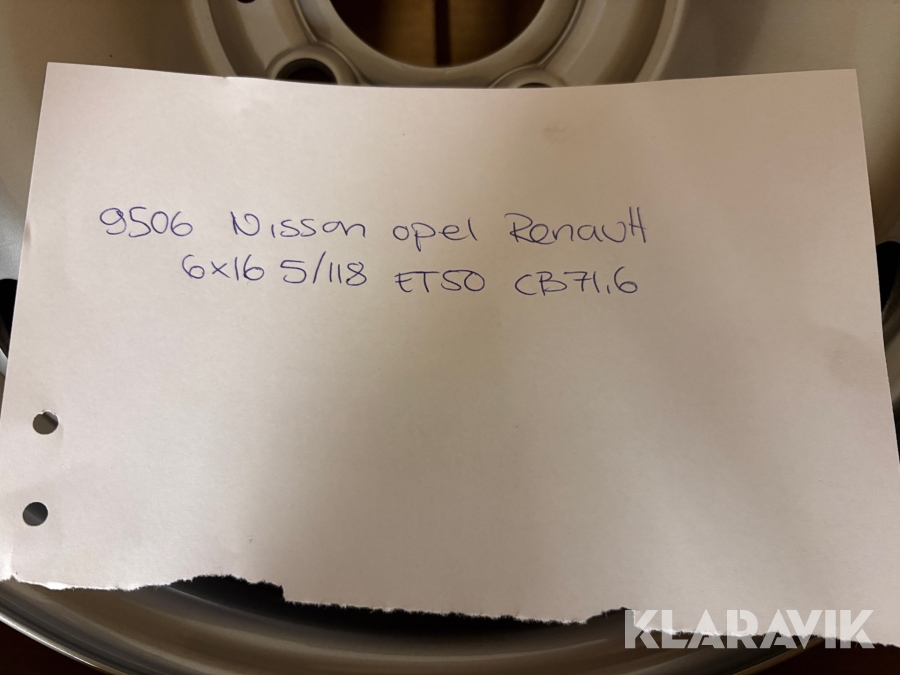 9506 Nissan opel Renault
6x16 5/118 ET50 CB71,6
KLARAVIK